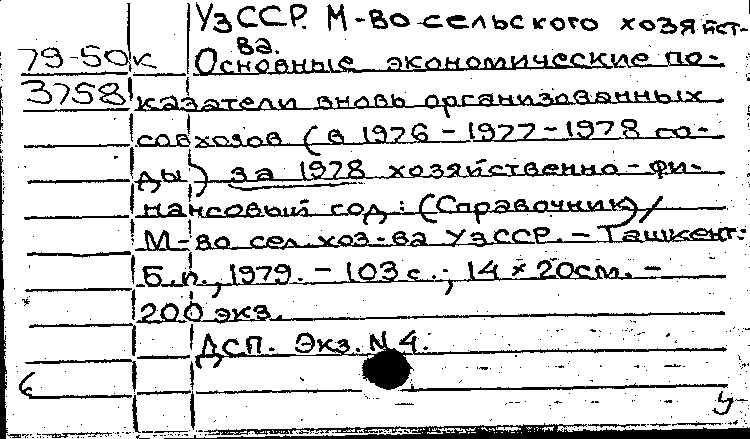 УзССР. М-во сельского хозяйст-
ва.
79-50к Основные экономические по-
3758 казатели вновь организованных
совхозов (в 1976-1977-1978 го-
ды) за 1978 хозяйственно-фи-
нансовый год: (Справочник)/
М-во сел. хоз-ва УзССР. - Ташкент:
Б.п., 1979. - 103 с.; 14 × 20см. -
200 экз.
ДСП. Экз. N 4.
У